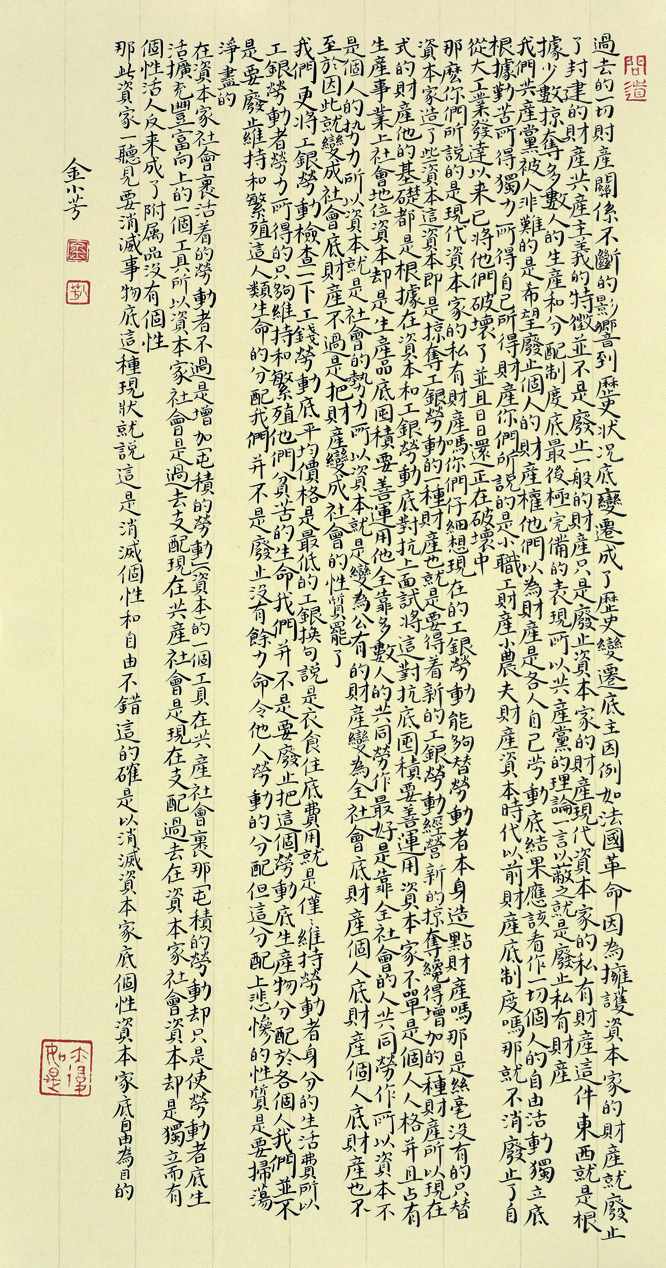 問道
過去的一切財產關係不斷的影響到歷史狀况底變遷成了歷史變遷底主因例如法國革命因為擁護資本家的財產就廢止
了封建的財產共產主義的特徵並不是廢止一般的財產只是廢止資本家的財產現代資本家的私有財產這件東西就是根
據少數掠奪多數人的生產和分配制度底最後極完備的表現所以共產黨的理論一言以蔽之就是廢止私有財產
我們共產黨被人非難的是希望廢止個人的財產權他們以為財產是各人自己勞動底結果應該看作一切個人的自由活動獨立底
根據勤苦所得獨力所得自己所得財產你們所說的是小職工財產小農夫財產資本時代以前財產底制度嗎那就不消廢止了自
從大工業發達以來已將他們破壞了並且日日還正在破壞中
那麽你們所說的是現代資本家的私有財產嗎你們仔細想現在的工銀勞動能夠替勞動者本身造點財產嗎那是絲毫沒有的只替
資本家造了些資本這資本即是掠奪工銀勞動的一種財產也就是要得着新的工銀勞動經營新的掠奪纔得增加的一種財產所以現在
式的財產他的基礎都是根據在資本和工銀勞動底對抗上面試將這對抗底囤積要善運用資本家不單是個人人格并且占有
生產事業上社會地位資本却是生產品底囤積要善運用他全靠多數人的共同勞作最好是靠全社會的人共同勞作所以資本不
是個人的势力所以資本就是社會的勢力所以資本就是變為公有的財產變為全社會底財產個人底財產個人底財產也不
至於因此就變成社會底財產不過是把財產變成社會的性質罷了
我們更將工銀勞動檢查一下工錢勞動底平均價格是最低的工銀換句說是衣食住底費用就是僅維持勞動者身分的生活費所以
工銀勞動者勞力所得的只夠維持和繁殖他們貧苦的生命我們并不是要廢止把這個勞動底生產物分配於各個人我們並不
是要廢止維持和繁殖這人類生命的分配我們并不是廢止没有餘力命令他人勞動的分配但這分配上悲慘的性質是要掃蕩
淨盡的
在資本家社會裏活着的勞動者不過是增加屯積的勞動（資本）的一個工具在共產社會裏那屯積的勞動却只是使勞動者底生
活擴充豐富向上的一個工具所以資本家社會是過去支配現在共產社會是現在支配過去在資本家社會資本却是獨立而有
個性活人反来成了附属品没有個性
那此資家一聽見要消滅事物底這種現狀就説這是消滅個性和自由不錯這的確是以消滅資本家底個性資本家底自由為目的
金小芳